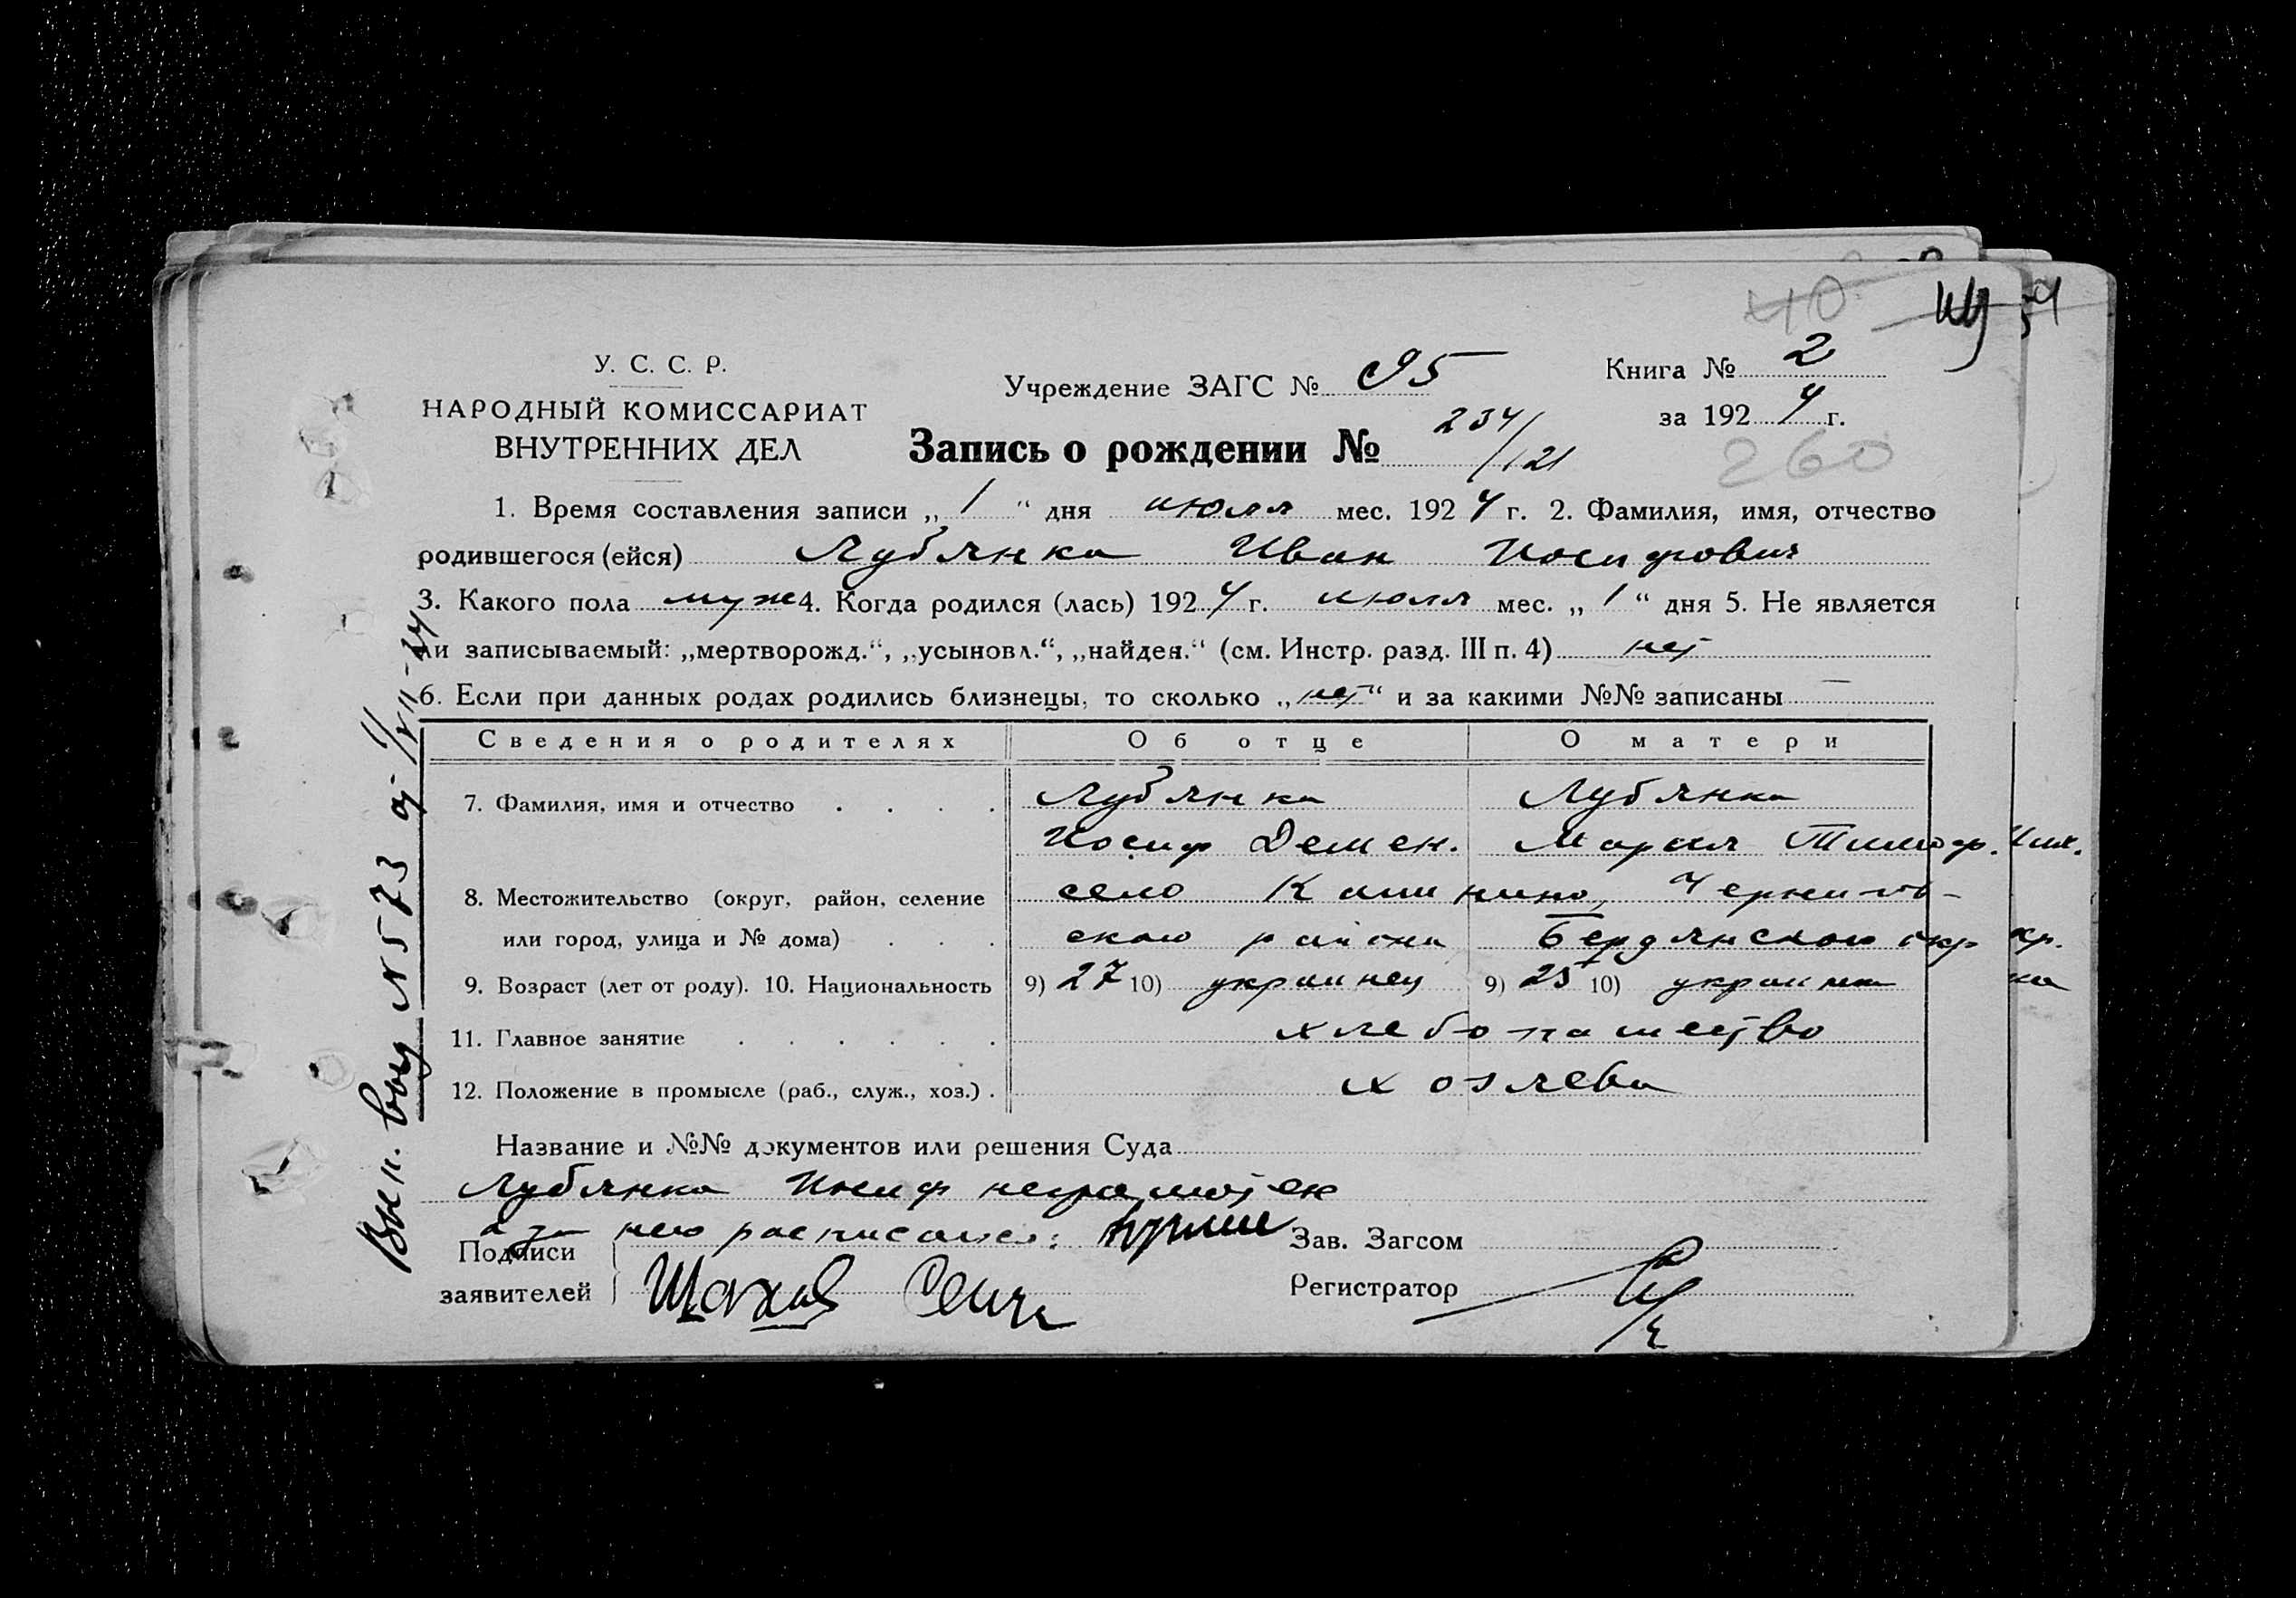 40
У. С. С. Р.
НАРОДНЫЙ КОМИССАРИАТ
ВНУТРЕННИХ ДЕЛ
Учреждение ЗАГС № 95
Книга № 2
за 1924 г.
Запись о рождении № 234/121
260
1. Время составления записи „1“ дня июля мес. 1924 г. 2. Фамилия, имя, отчество
родившегося (ейся) Лубянка Иван Иосифович
3. Какого пола муж 4. Когда родился (лась) 1924 г. июля мес. „1“ дня 5. Не является
ли записываемый: „мертворожд.“, „усыновл.“, „найден.“ (см. Инстр. разд. III п. 4) нет
6. Если при данных родах родились близнецы, то сколько „нет“ и за какими №№ записаны —
Сведения о родителях Об отце О матери
7. Фамилия, имя и отчество . . . . Лубянка Лубянка
Иосиф Демен. Мария Тимоф.
8. Местожительство (округ, район, селение село Чернигов-
или город, улица и № дома) . . . ского района Бердянского окр
9. Возраст (лет от роду). 10. Национальность 9) 27 10) украинец 9) 25 10) украинка
11. Главное занятие . . . . . . хлебопашество
12. Положение в промысле (раб., служ., хоз.) . хозяева
Название и №№ документов или решения Суда
Лубянка Иосиф неграмотен
а за него расписался:
Подписи
заявителей
Зав. Загсом
Регистратор
Вып. выд № 573 от 1/VII-24